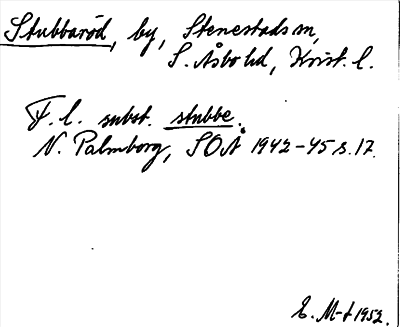 Stubbaröd, by, Stenestads sn,
S. Åsbo hd, Krist. l.
F. l. subst. stubbe.
N. Palmborg, SOÅ 1942-45 s. 17.
E. M-t 1952.